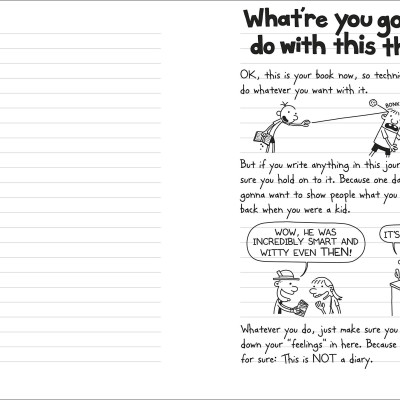 What're you go
do with this th
OK, this is your book now, so techni
do whatever you want with it.
BONK
But if you write anything in this jour
sure you hold on to it. Because one da
gonna want to show people what you
back when you were a kid.
WOW, HE WAS
INCREDIBLY SMART AND
WITTY EVEN THEN!
IT'S
Whatever you do, just make sure you
down your "feelings" in here. Because
for sure: This is NOT a diary.